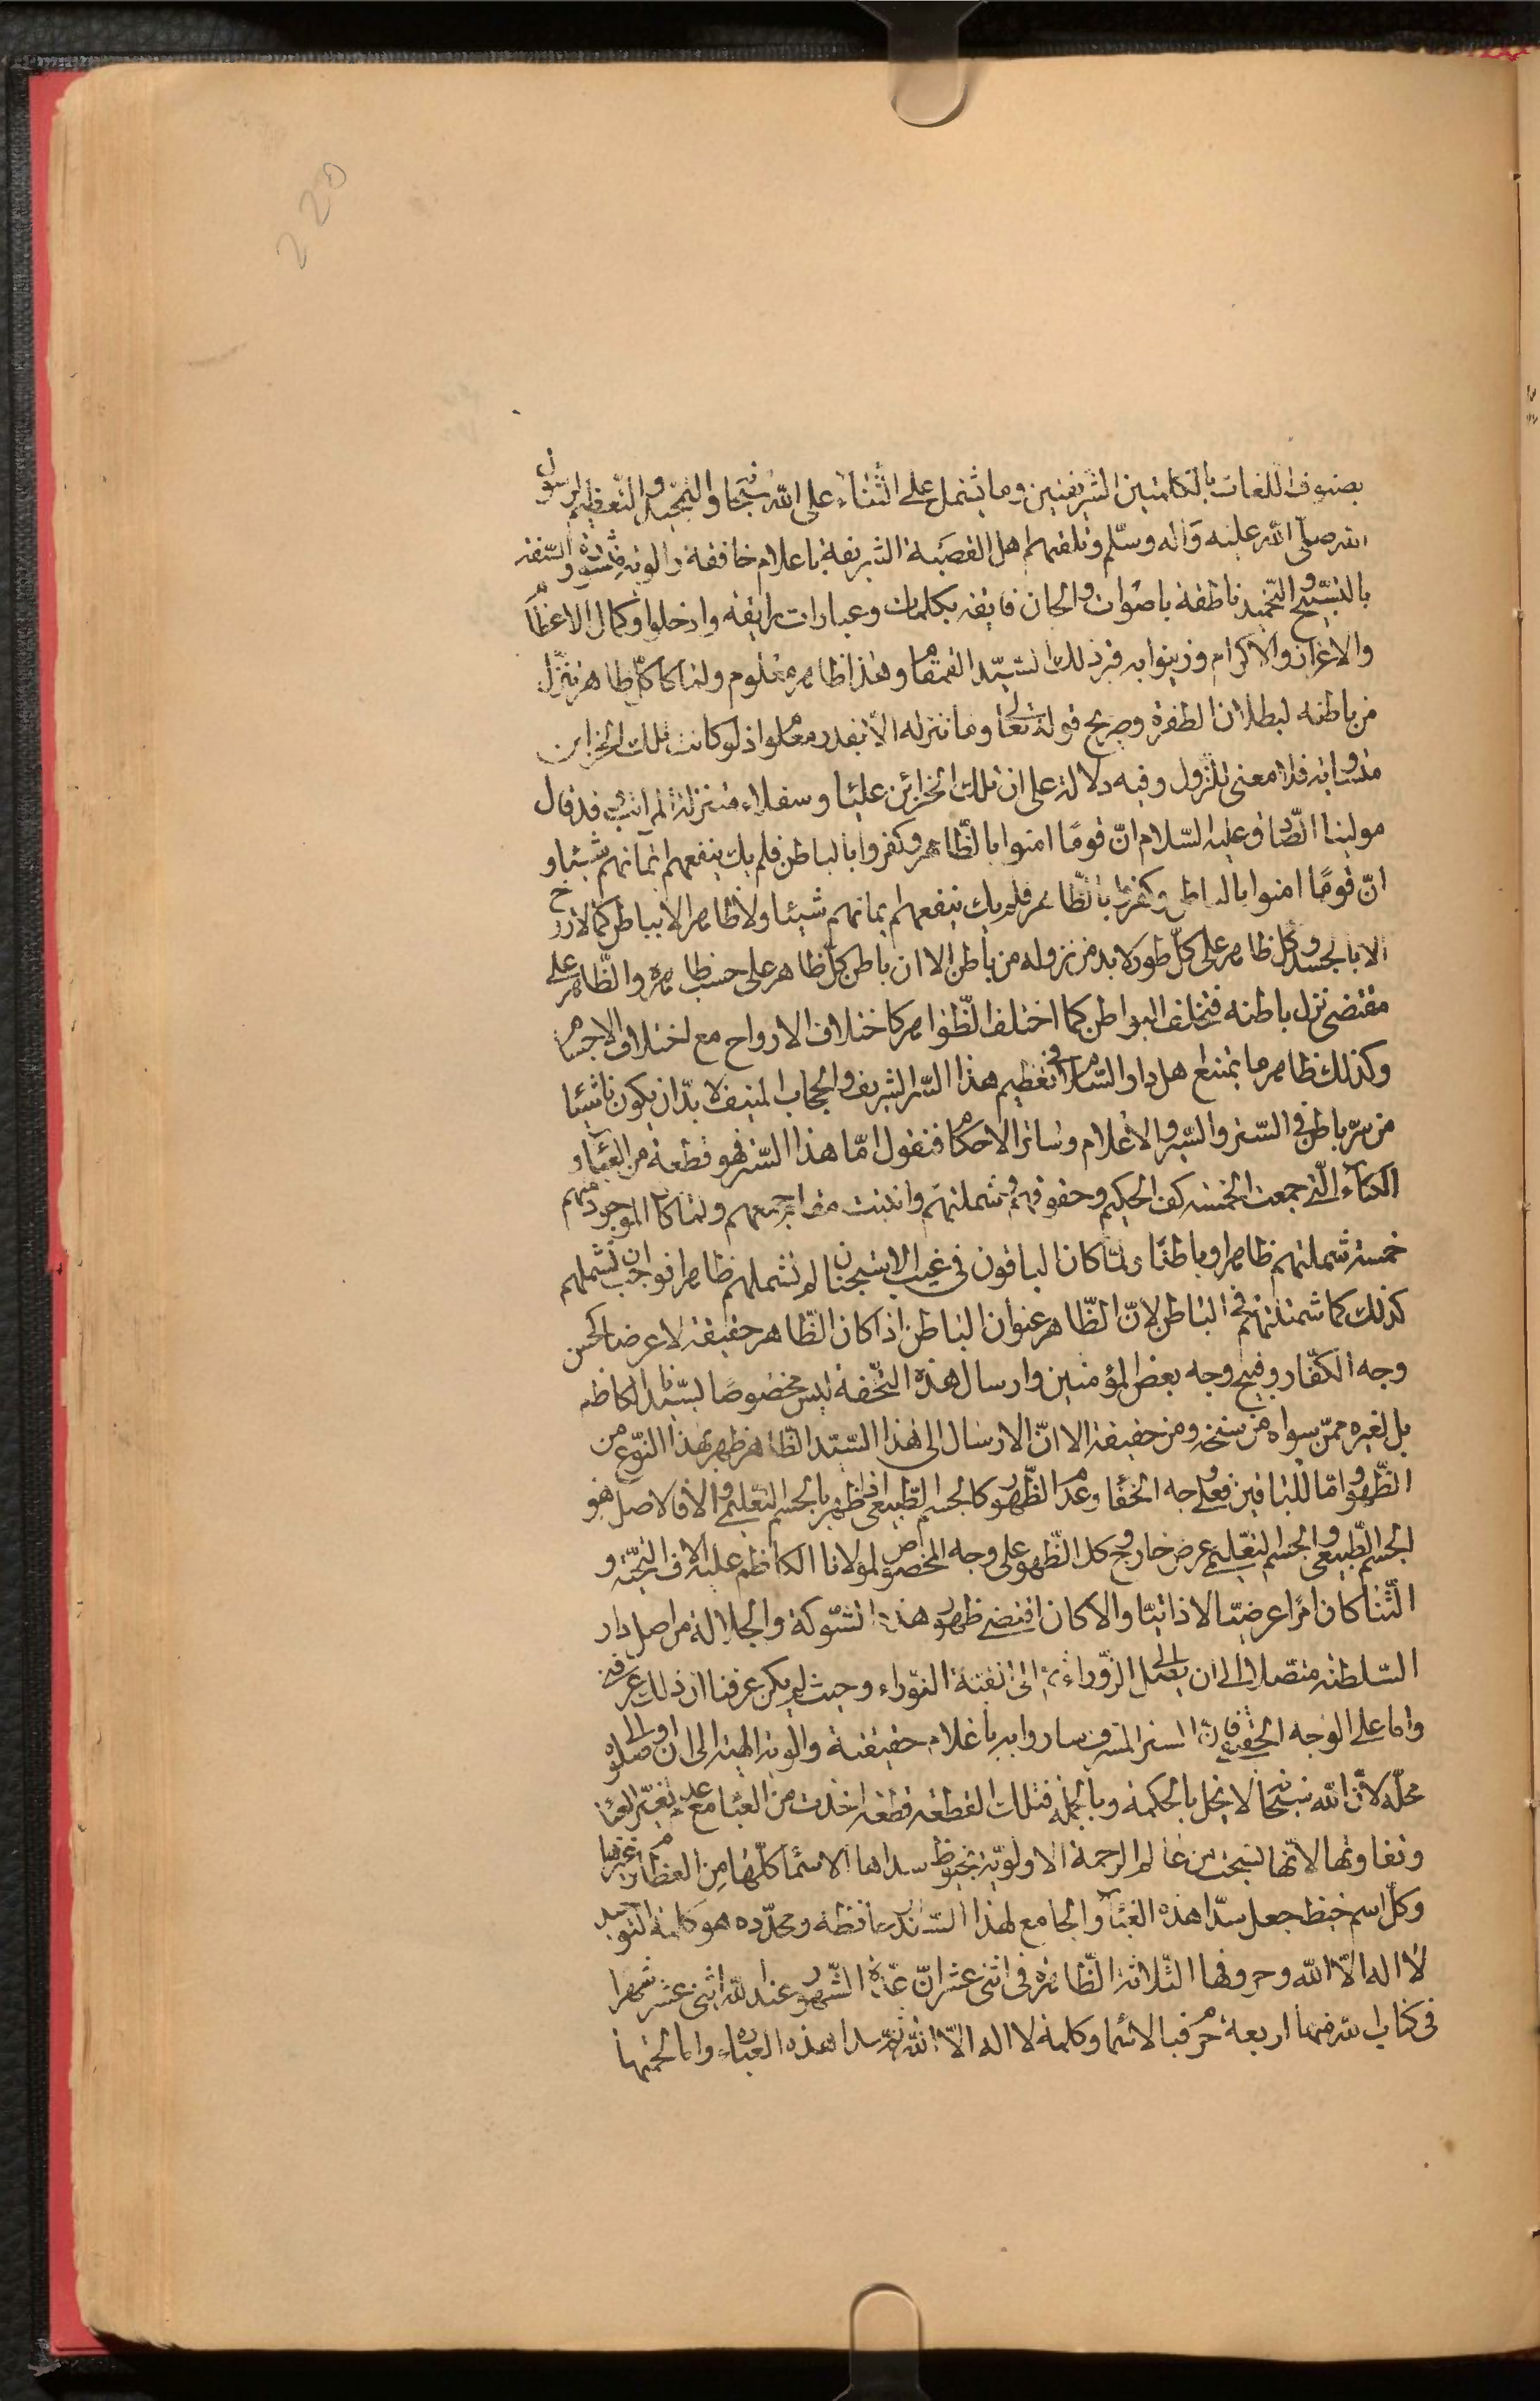 220
بصنوف اللغات بالكلمتين الشريفتين وما يشتمل على الثناء على الله سبحانه والتمجيد والتعظيم لرسول
الله صلى الله عليه وآله وسلم وتلقيهم اهل القصبة الشريفة باعلام خافقة والوية منشورة والسنة
بالتسبيح والتحميد ناطقة باصوات والحان فايقه بكلمات وعبارات رايقه وادخلوا وكمال الاعظام
والاعزاز والاكرام وزينوا به قبر ذلك السيد القمقام وهذا ظاهر معلوم ولما كان كل ظاهر تنزل
من باطنه لبطلان الطفرة وصريح قوله تعالى وما ننزله الا بقدر معلوم اذ لو كانت تلك الخزاين
متساوية فلا معنى للنزول وفيه دلالة على ان تلك الخزائن عليا وسفلاء متنزلة المراتب قد قال
مولينا الصادق عليه السلام انّ قومًا امنوا بالظاهر وكفروا بالباطن فلم يك ينفعهم ايمانهم شيئا و
انّ قومًا امنوا بالباطن وكفروا بالظاهر فلم يك ينفعهم ايمانهم شيئا ولا ظاهر الا بباطن كما لا روح
الا بالجسد وكل ظاهر على كلّ طور لابد من نزوله من باطن الا ان باطن كلّ ظاهر على حسب ظاهره والظاهر على
مقتضى تنزل باطنه فتختلف البواطن كما اختلف الظواهر كاختلاف الارواح مع اختلاف الاجسام
وكذلك ظاهر ما يمتنع اهل دار السلام في تعظيم هذا الستر الشريف والحجاب المنيف لا بدّ ان يكون ناشئا
من سرّ باطن في الستر والسير والاعلام وسائر الاحكام فنقول امّا هذا الستر فهو قطعة من العبآء و
الكسآء التي جمعت الخمسة كف الحكيم وحقوقهم وشملتهم وانبئت مقا جميعهم ولما كان الموجود منهم
خمسة شملتهم ظاهرا وباطنًا ولما كان الباقون في غيب الاستجنان لم تشملهم ظاهرا فوجب ان تشملهم
كذلك كما شملتهم في الباطن لانّ الظاهر عنوان الباطن اذا كان الظاهر حقيقة لا عرضا كحسن
وجه الكفّار وقبح وجه بعض المؤمنين وارسال هذه التحفة ليس مخصوصًا لسيدنا الكاظم
بل لغيره ممّن سواه من سنخه ومن حقيقة الا انّ الارسال الى هذا السيّد الظاهر ظهر بهذا النوع من
الظهور وامّا للباقين فعلى وجه الخفاء وعدم الظهور كالجسم الطبيعي اذا ظهر بالجسم التعليمي والا فالاصل هو
الجسم الطبيعي والجسم التعليمي عرض خارج وكل الظهور على وجه الخصوص لمولانا الكاظم عليه الاف التحيّة و
الثنا كان امرًا عرضيّا لا ذاتيّا والا كان اقتضى ظهور هذه الشوكة والجلالة من اصل دار
السلطنة متصلا الى ان يصل الى الزوراء الى النقبة النوراء وحيث لم يكن عرفنا ان ذلك عرفيّة
واما على الوجه الحقيقي فان الستر المشرف ساروا به باعلام حقيقية والوية الهية الى ان اوصلوه الى
محلّه لانّ الله سبحانه لا يخل بالحكمة وبالجملة فتلك القطعة قطعة اخذت من العبا مع عدم تغيّر العبا
وتفاوتها لانّها نسجت من عالم الرحمة الاولويّة بخيوط سداها الاسماء كلّها من العظام وغيرها
وكلّ اسم خيط جعل سدّا هذه العباء والجامع لهذا السدا حافظه ومحدّده هو كلمة التوحيد
لا اله الا الله وحروفها الثلاثة الظاهرة في اثنى عشر انّ عدّة الشهور عند الله اثنى عشر شهرا
في كتاب الله منها اربعة حرم فبالاسماء وكلمة لا اله الا الله تم سدا هذه العباء واما لحمتها